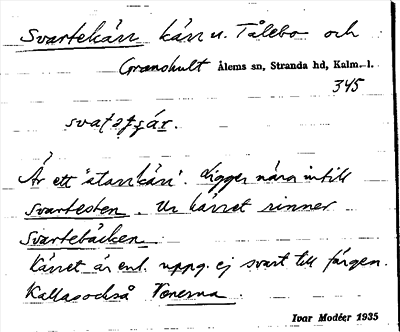 Svartekärr kärr u. Tålebo och
Granshult Ålems sn, Stranda hd, Kalm. l.
345
Är ett "utankärr". Ligger nära intill
Svartesten. Ur kärret rinner
Svartebäcken.
Kärret är enl. uppg. ej svart till färgen.
Kallas också Venerna.
Ivar Modéer 1935